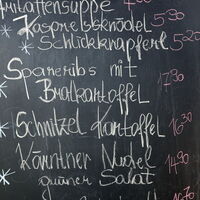 Frittattensuppe
* Kaspressknödel 5.30
Schlickkrapferl 5.20
Spareribs mit
Bratkartoffel 17.90
* Schnitzel Kartoffel 16.30
Kärntner Nudel
* grüner Salat 14.90